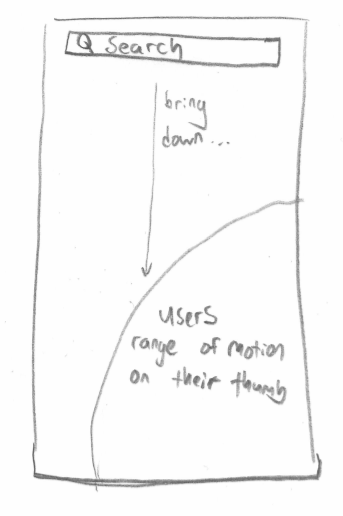 Search
bring
down...
users
range of motion
on their thumb